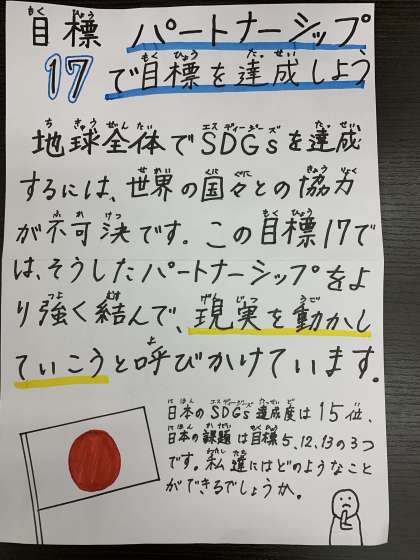 目標 パートナーシップ
17 で目標を達成しよう
地球全体でSDGsを達成
するには、世界の国々との協力
が不可決です。この目標17で
は、そうしたパートナーシップをよ
り強く結んで、現実を動かし
ていこうと呼びかけています。
日本のSDGs達成度は15位、
日本の課題は目標5、12、13の3つ
です。私達にはどのようなこと
ができるでしょうか。